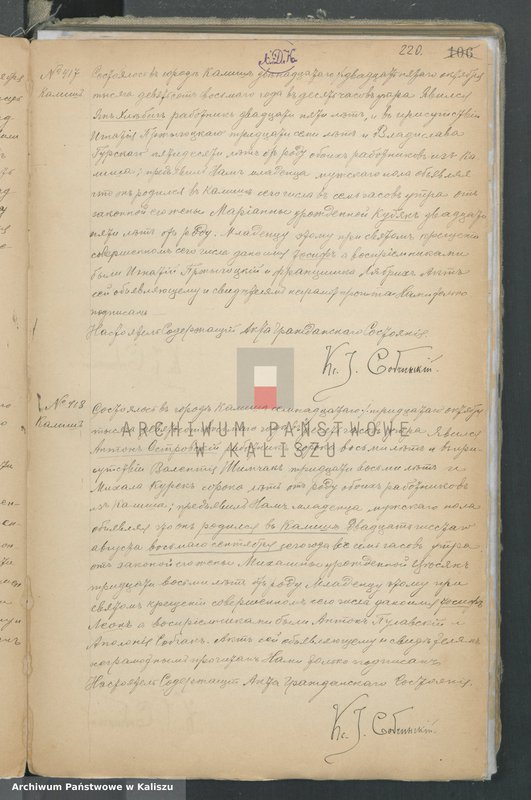 А.Д.К. 220. 106
№ 417
Калишъ
Состоялось въ городѣ Калишѣ двѣнадцатаго /: двадцать пятаго октября
тысяча девятьсотъ восьмаго года въ десять часовъ утра. Явился
работникъ двадцати пяти лѣтъ, и въ присутствіи
Игнатія тридцати семи лѣтъ и Владислава
Гурскаго пятидесяти лѣтъ отъ роду обоихъ работниковъ изъ Ка-
лиша; предъявилъ Намъ младенца мужескаго пола объявляя
что онъ родился въ Калишѣ сего числа въ семь часовъ утра отъ
законной его жены Маріанны урожденной двадцати
пяти лѣтъ отъ роду. Младенцу этому при святомъ крещеніи
совершенномъ сего числа дано имя Іосифъ а воспріемниками
были Игнатій и Францишка Актъ
сей объявляющему и свидѣтелямъ неграмотнымъ прочитанъ Нами только
подписанъ
Настоятель Содержащій Акты Гражданскаго Состоянія
Кс. J. Собчинскій
№ 418
Калишъ
Состоялось въ городѣ Калишѣ семнадцатаго /: тридцатаго октября
Явился
Антонъ Островскій сорока восьми лѣтъ и въ при-
сутствіи Валентія тридцати восьми лѣтъ и
Михала Курекъ сорока лѣтъ отъ роду обоихъ работниковъ
изъ Калиша; предъявилъ Намъ младенца мужескаго пола
объявляя что онъ родился въ Калишѣ двадцать шестаго
августа восьмаго сентября сего года въ семь часовъ утра
отъ законной его жены Михалины урожденной
тридцати восьми лѣтъ отъ роду. Младенцу этому при
святомъ крещеніи совершенномъ сего числа дано имя Іосифъ
Леонъ а воспріемниками были Антонъ и
Аполонія Актъ сей объявляющему и свидѣтелямъ
неграмотнымъ прочитанъ Нами только подписанъ
Настоятель Содержащій Акты Гражданскаго Состоянія.
Кс. J. Собчинскій
ARCHIWUM PAŃSTWOWE
W KALISZU
Archiwum Państwowe w Kaliszu